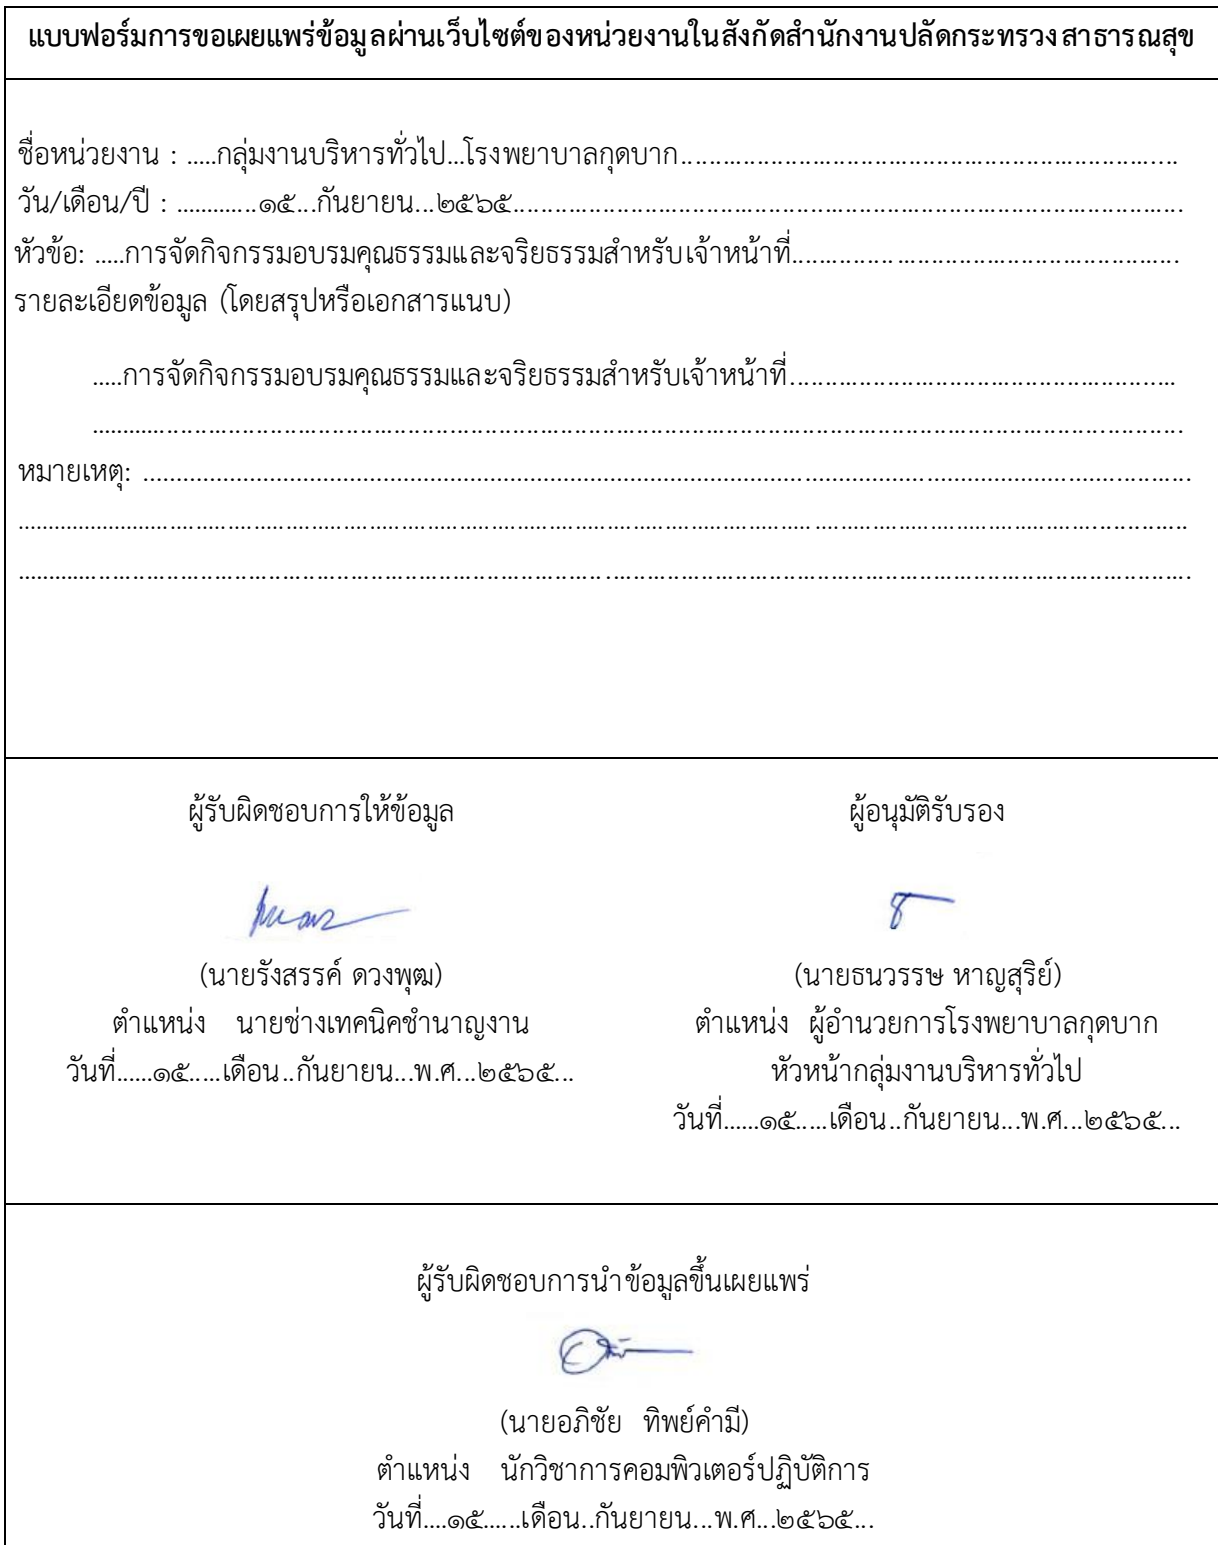 แบบฟอร์มการขอเผยแพร่ข้อมูลผ่านเว็บไซต์ของหน่วยงานในสังกัดสำนักงานปลัดกระทรวงสาธารณสุข
ชื่อหน่วยงาน : .....กลุ่มงานบริหารทั่วไป...โรงพยาบาลกุดบาก......................................................................
วัน/เดือน/ปี : .............๑๕...กันยายน...๒๕๖๕.............................................................................................
หัวข้อ: .....การจัดกิจกรรมอบรมคุณธรรมและจริยธรรมสำหรับเจ้าหน้าที่......................................................
รายละเอียดข้อมูล (โดยสรุปหรือเอกสารแนบ)
.....การจัดกิจกรรมอบรมคุณธรรมและจริยธรรมสำหรับเจ้าหน้าที่......................................................
......................................................................................................................................................
หมายเหตุ: ..............................................................................................................................................
......................................................................................................................................................
......................................................................................................................................................
ผู้รับผิดชอบการให้ข้อมูล ผู้อนุมัติรับรอง
(นายรังสรรค์ ดวงพุฒ) (นายธนวรรษ หาญสุริย์)
ตำแหน่ง นายช่างเทคนิคชำนาญงาน ตำแหน่ง ผู้อำนวยการโรงพยาบาลกุดบาก
วันที่......๑๕.....เดือน..กันยายน...พ.ศ...๒๕๖๕... หัวหน้ากลุ่มงานบริหารทั่วไป
วันที่......๑๕.....เดือน..กันยายน...พ.ศ...๒๕๖๕...
ผู้รับผิดชอบการนำข้อมูลขึ้นเผยแพร่
(นายอภิชัย ทิพย์คำมี)
ตำแหน่ง นักวิชาการคอมพิวเตอร์ปฏิบัติการ
วันที่....๑๕......เดือน..กันยายน...พ.ศ...๒๕๖๕...